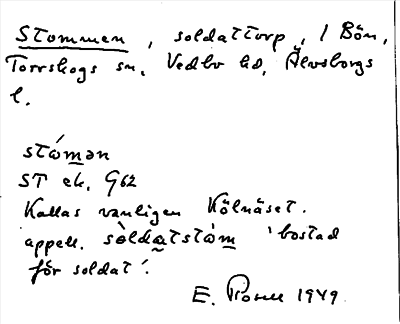 Stommen, soldattorp, / Bön,
Torrskogs sn, Vedbo hd, Älvsborgs
l.
stó̀mən
ST ek. G62
Kallas vanligen Kölnäset.
appell. sòldatstòm 'bostad
för soldat'.
E. 1949.